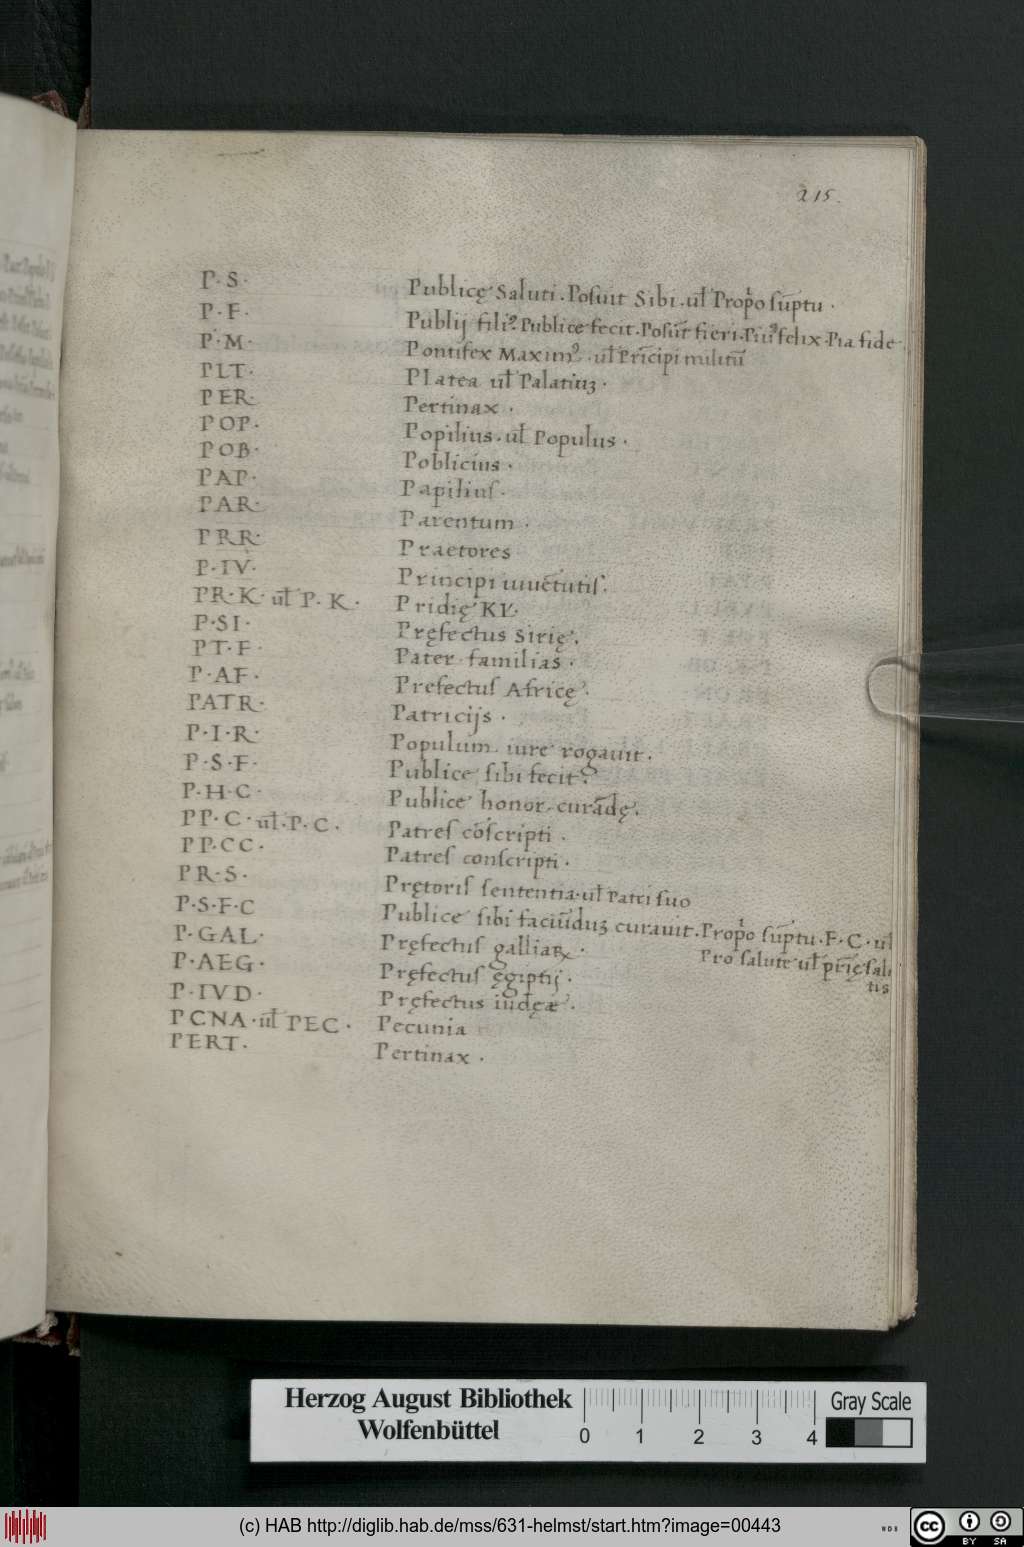 215.
P·S· Publicę Saluti. Posuit Sibi. ul̄ Prop̱o sūptu.
P·F· Publij filiꝰ. Publice fecit. Posūt fieri. Piuꝰ felix. Pia fide
P·M· Pontifex Maximꝰ. ul̄ Prīcipi militū
PLT· Platea ul̄ Palatiuʒ.
PER· Pertinax.
POP· Popilius. ul̄ Populus.
POB· Poblicius.
PAP· Papilius.
PAR· Parentum.
PRR· Praetores
P·IV· Principi iuuētutis.
PR·K· ul̄ P·K· Pridię KL·
P·SI· Pręfectus Sirię.
PT·F· Pater familias.
P·AF· Prefectus Africę.
PATR· Patricijs.
P·I·R· Populum iure rogauit.
P·S·F· Publice sibi fecit.
P·H·C· Publice honor. curādę.
PP·C· ul̄·P·C· Patres cōscripti.
PP·CC· Patres conscripti.
PR·S· Prętoris sententia. ul̄ Patri suo
P·S·F·C Publice sibi faciūduʒ curauit. Prop̱o sūptu·F·C· ul̄
Pro salute ul̄ pr̄ię salu
tis
P·GAL· Pręfectus galliaꝝ.
P·AEG· Pręfectus ęgiptij.
P·IVD· Pręfectus iudęæ.
PCNA· ul̄ PEC· Pecunia
PERT· Pertinax.
Herzog August Bibliothek
Wolfenbüttel
0 1 2 3 4
Gray Scale
(c) HAB http://diglib.hab.de/mss/631-helmst/start.htm?image=00443
WDB
cc
BY SA